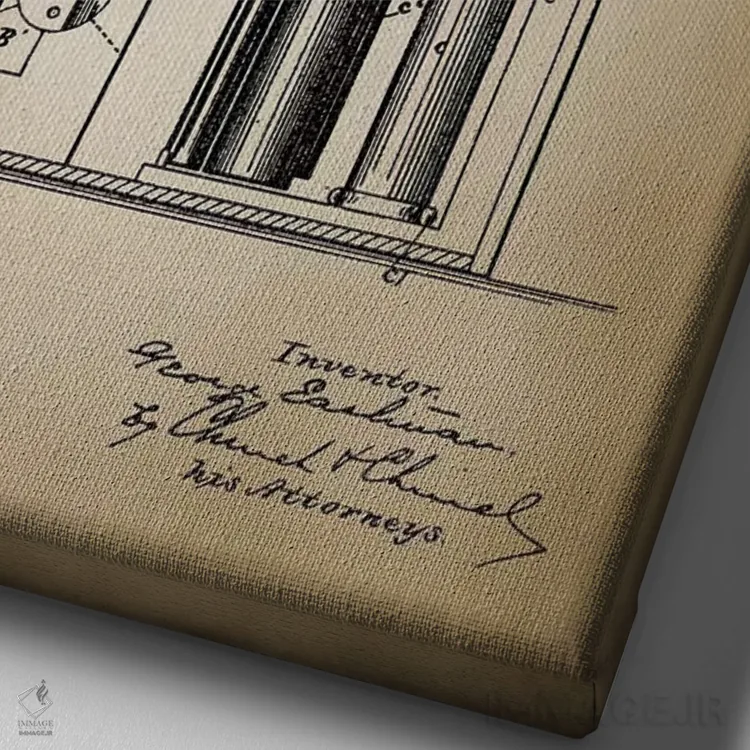 B'
c'
c
c'
Inventor.
George Eastman,
by Church & Church
his Attorneys.
IMMAGE
IMMAGE.IR
IMMAGE.IR